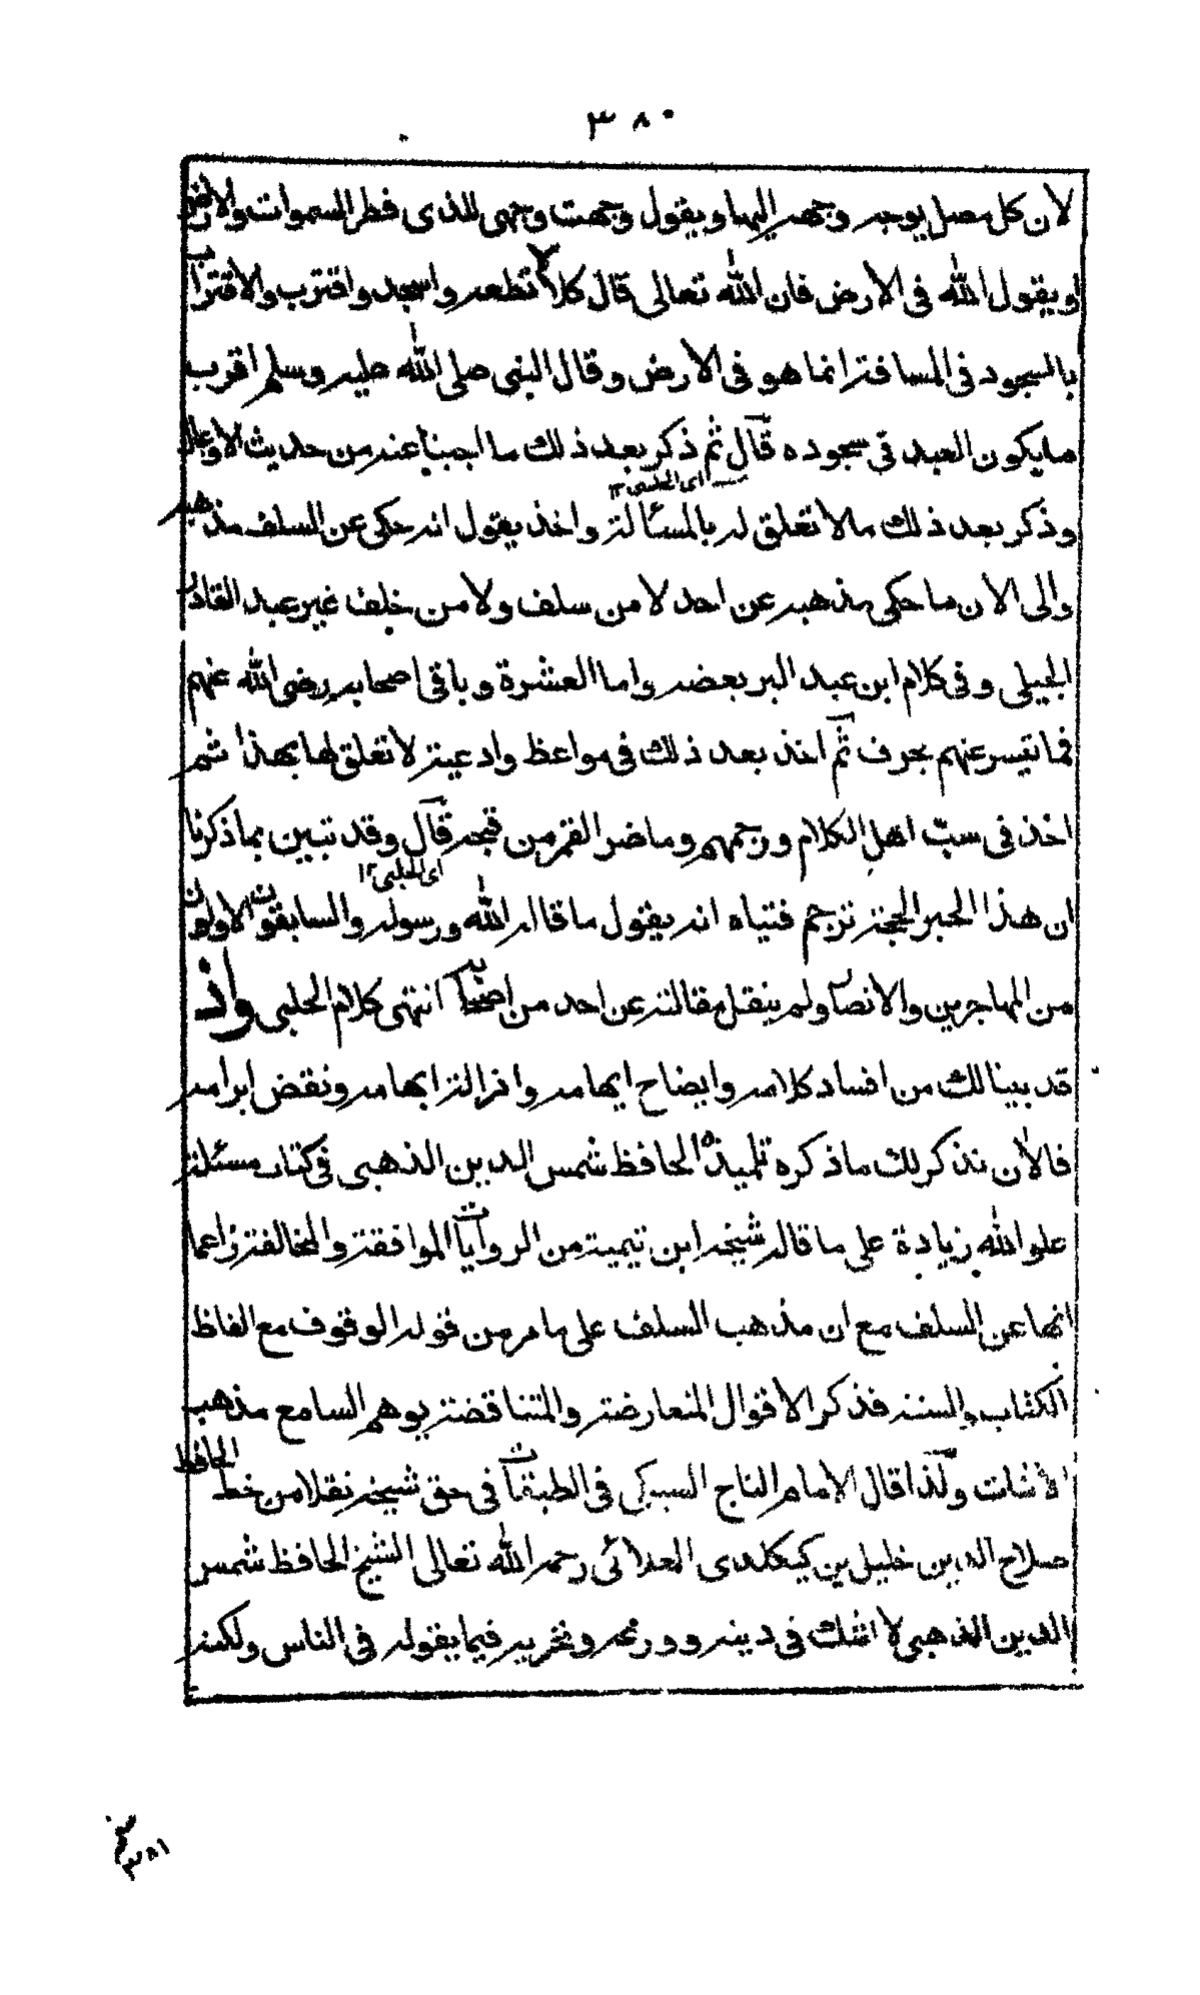 ٣٨٠
لان كل مصل يوجه وجهه اليها ويقول وجهت وجهي للذى فطر السموات والارض
او يقول الله فى الارض فان الله تعالى قال كلا لا تطعه واسجد واقترب والاقتراب
بالسجود فى المسافة انما هو فى الارض وقال النبى صلى الله عليه وسلم اقرب
مايكون العبد فى سجوده قال ثم ذكر بعد ذلك ما اجبنا عنه من حديث الاوعال
اى الحلبى ١٢
وذكر بعد ذلك مالا تعلق له بالمسألة واخذ يقول انه حكى عن السلف مذهبه
والى الان ما حكى مذهبه عن احد لا من سلف ولا من خلف غير عبد القادر
الجيلى وفى كلام ابن عبد البر بعضه واما العشرة وباقى اصحابه رضى الله عنهم
فما تيسر عنهم بحرف ثم اخذ بعد ذلك فى مواعظ وادعية لا تعلق لها بهذا ثم
اخذ فى سب اهل الكلام ورجمهم وما ضر القمر من قبحه قال وقد تبين بما ذكرنا
اى الحلبى ١٢
ان هذا الحبر الحجة ترجم فتياه انه يقول ما قاله الله ورسوله والسابقون الاولون
من المهاجرين والانصار ولم ينقل مقالته عن احد من اصحابه انتهى كلام الحلبى واذ
قد بينا لك من افساد كلامه وايضاح ايهامه وازالة ابهامه ونقض ابرامه
فالان نذكر لك ماذكره تلميذه الحافظ شمس الدين الذهبى فى كتاب مسئلة
علو الله زيادة على ما قاله شيخه ابن تيمية من الروايات الموافقة والمخالفة زاعما
انها عن السلف مع ان مذهب السلف على مامر من قوله الوقوف مع الفاظ
الكتاب والسنة فذكر الاقوال المتعارضة والمتناقضة يوهم السامع مذهب
الاثبات ولذا قال الامام التاج السبكى فى الطبقات فى حق شيخه نقلا من خط الحافظ
صلاح الدين خليل بن كيكلدى العلائى رحمه الله تعالى الشيخ الحافظ شمس
الدين الذهبى لا اشك فى دينه وورعه وتحريه فيما يقوله فى الناس ولكنه
٣٨١